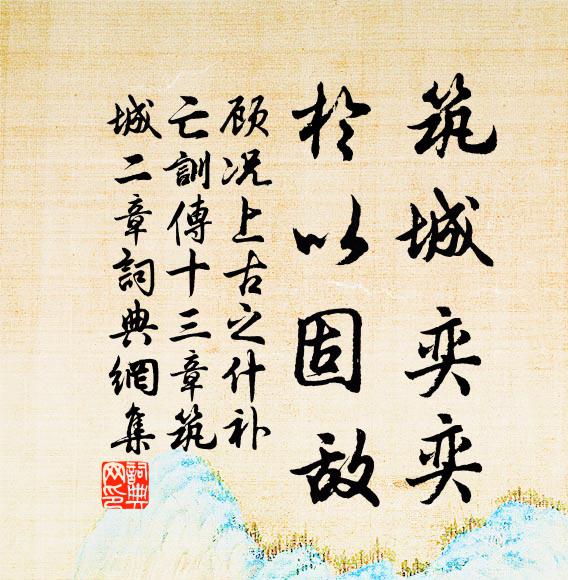 筑城奕奕
於以固敌
顾况上古之什补
亡訓傳十三章筑
城二章詞典網集
詞典
网印